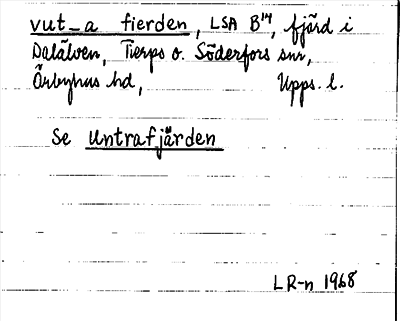 vut_a fierden, LSA B¹⁴, fjärd i
Dalälven, Tierps o. Söderfors snr,
Örbyhus hd, Upps. l.
Se Untrafjärden
LR-n 1968